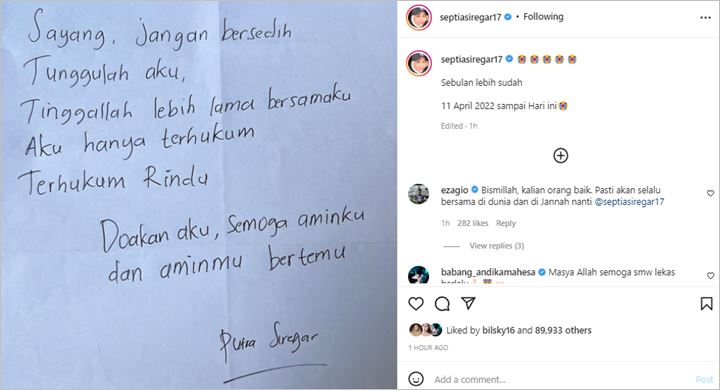 Sayang, jangan bersedih
Tunggulah aku,
Tinggallah lebih lama bersamaku
Aku hanya terhukum
Terhukum Rindu
Doakan aku, semoga aminku
dan aminmu bertemu
Putra Siregar
septiasiregar17 • Following
septiasiregar17
Sebulan lebih sudah
11 April 2022 sampai Hari ini
Edited · 1h
ezagio Bismillah, kalian orang baik. Pasti akan selalu
bersama di dunia dan di Jannah nanti @septiasiregar17
1h 282 likes Reply
View replies (3)
babang_andikamahesa Masya Allah semoga smw lekas
berlalu
Liked by bilsky16 and 89,933 others
1 HOUR AGO
Add a comment...
Post